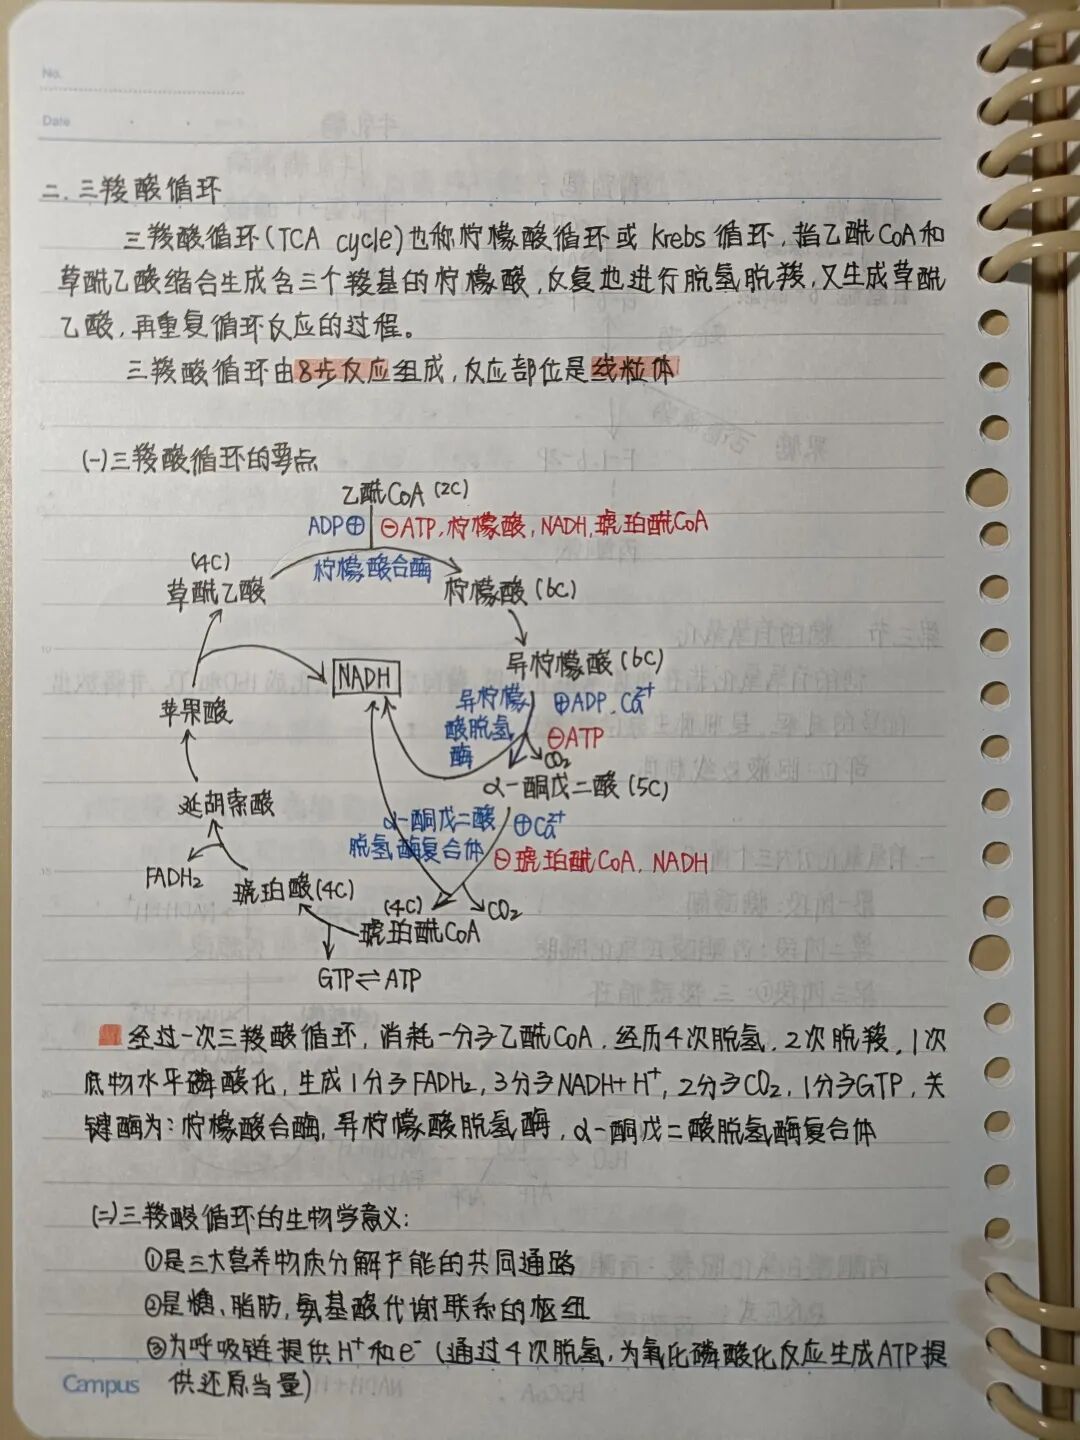 No.
Date
二.三羧酸循环
三羧酸循环(TCA cycle)也称柠檬酸循环或 Krebs 循环,指乙酰CoA和
草酰乙酸缩合生成含三个羧基的柠檬酸,反复地进行脱氢脱羧,又生成草酰
乙酸,再重复循环反应的过程。
三羧酸循环由8步反应组成,反应部位是线粒体
(一)三羧酸循环的要点
乙酰CoA(2C)
ADP⊕ ⊖ATP,柠檬酸,NADH,琥珀酰CoA
柠檬酸合酶
(4C)
草酰乙酸
柠檬酸(6C)
异柠檬酸(6C)
NADH
苹果酸
异柠檬
酸脱氢
酶
⊕ADP.Ca²⁺
⊖ATP
CO₂
α-酮戊二酸(5C)
延胡索酸
α-酮戊二酸
脱氢酶复合体
⊕Ca²⁺
⊖琥珀酰CoA,NADH
FADH₂
琥珀酸(4C)
(4C)
琥珀酰CoA
CO₂
GTP⇌ATP
经过一次三羧酸循环,消耗一分子乙酰CoA.经历4次脱氢.2次脱羧,1次
底物水平磷酸化,生成1分子FADH₂,3分子NADH+H⁺,2分子CO₂,1分子GTP,关
键酶为:柠檬酸合酶,异柠檬酸脱氢酶,α-酮戊二酸脱氢酶复合体
(二)三羧酸循环的生物学意义:
①是三大营养物质分解产能的共同通路
②是糖、脂肪,氨基酸代谢联系的枢纽
③为呼吸链提供H⁺和e⁻(通过4次脱氢,为氧化磷酸化反应生成ATP提
供还原当量)
Campus